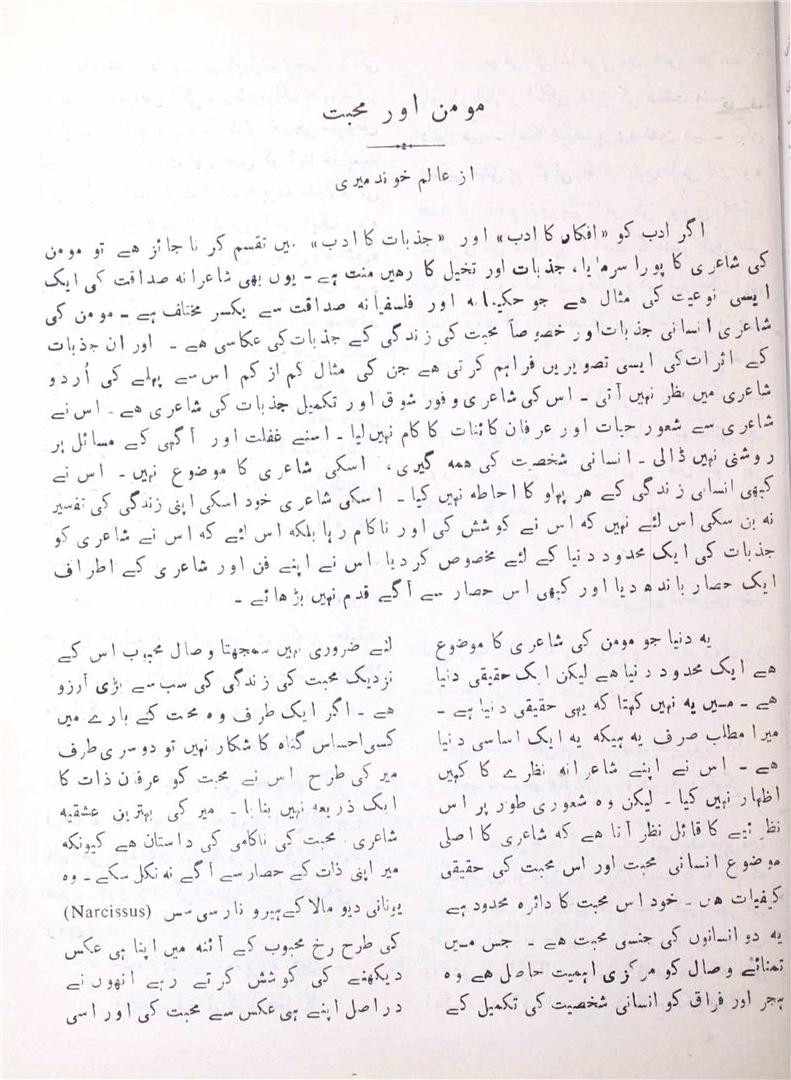 مومن اور محبت
از عالم خوند میری
اگر ادب کو «افکار کا ادب» اور «جذبات کا ادب» میں تقسم کر نا جائز ھے تو مومن
کی شاعری کا پورا سرمایا، جذبات اور تخیل کا رھین منت ھے۔ یوں بھی شاعرانہ صداقت کی ایک
ایسی نوعیت کی مثال ھے جو حکیمانہ اور فلسفیانہ صداقت سے یکسر مختلف ھے۔ مومن کی
شاعری انسانی جذبات اور خصوصاً محبت کی زندگی کے جذبات کی عکاسی ھے۔ اور ان جذبات
کے اثرات کی ایسی تصویریں فراہم کرتی ھے جن کی مثال کم از کم اس سے پہلے کی اُردو
شاعری میں نظر نہیں آتی۔ اس کی شاعری وفور شوق اور تکمیل جذبات کی شاعری ھے۔ اس نے
شاعری سے شعور حیات اور عرفان کائنات کا کام نہیں لیا۔ اسنے غفلت اور آگہی کے مسائل پر
روشنی نہیں ڈالی۔ انسانی شخصیت کی ھمہ گیری، اسکی شاعری کا موضوع نہیں۔ اس نے
کبھی انسانی زندگی کے ھر پہلو کا احاطہ نہیں کیا۔ اسکی شاعری خود اسکی اپنی زندگی کی تفسیر
نہ بن سکی اس لئے نہیں کہ اس نے کوشش کی اور ناکام رہا بلکہ اس لئے کہ اس نے شاعری کو
جذبات کی ایک محدود دنیا کے لئے مخصوص کر دیا۔ اس نے اپنے فن اور شاعری کے اطراف
ایک حصار باندھ دیا اور کبھی اس حصار سے آگے قدم نہیں بڑھائے۔
یہ دنیا جو مومن کی شاعری کا موضوع
ھے ایک محدود دنیا ھے لیکن ایک حقیقی دنیا
ھے۔ میں یہ نہیں کہتا کہ یہی حقیقی دنیا ہے۔
میرا مطلب صرف یہ ھیکہ یہ ایک اساسی دنیا
ھے۔ اس نے اپنے شاعرانہ نظرے کا کہیں
اظہار نہیں کیا۔ لیکن وہ شعوری طور پر اس
نظرئیے کا قائل نظر آتا ھے کہ شاعری کا اصلی
موضوع انسانی محبت اور اس محبت کی حقیقی
کیفیات ھیں۔ خود اس محبت کا دائرہ محدود ہے
یہ دو انسانوں کی جنسی محبت ھے۔ جس میں
تمنائے وصال کو مرکزی اہمیت حاصل ھے وہ
ہجر اور فراق کو انسانی شخصیت کی تکمیل کے
لئے ضروری نہیں سمجھتا وصال محبوب اس کے
نزدیک محبت کی زندگی کی سب سے بڑی آرزو
ھے۔ اگر ایک طرف وہ محبت کے بارے میں
کسی احساس گناہ کا شکار نہیں تو دوسری طرف
میر کی طرح اس نے محبت کو عرفان ذات کا
ایک ذریعہ نہیں بنایا۔ میر کی بہترین عشقیہ
شاعری محبت کی ناکامی کی داستان ھے کیونکہ
میر اپنی ذات کے حصار سے آگے نہ نکل سکے۔ وہ
یونانی دیو مالا کے ہیرو نارسی سس (Narcissus)
کی طرح رخ محبوب کے آئنہ میں اپنا ہی عکس
دیکھنے کی کوشش کرتے رہے انھوں نے
دراصل اپنے ہی عکس سے محبت کی اور اسی